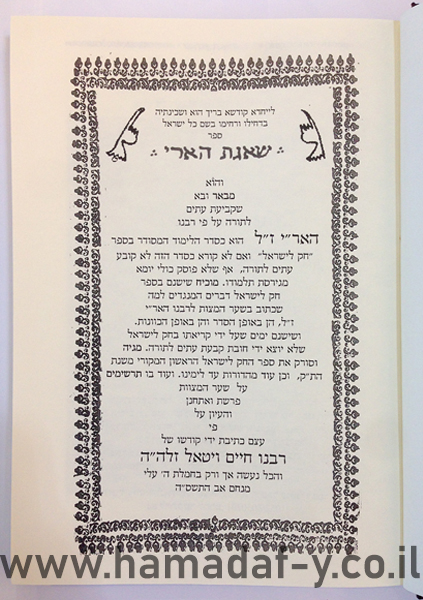 לייחדא קודשא בריך הוא ושכינתיה
בדחילו ורחימו בשם כל ישראל
ספר
שאגת הארי
והוא
מבאר ובא
שקביעת עתים
לתורה על פי רבנו
האר"י ז"ל הוא כסדר הלימוד המסודר בספר
"חק לישראל" ואם לא קורא כסדר הזה לא קובע
עתים לתורה, אף שלא פוסק כולי יומא
מגירסת תלמודו. מוכיח שישנם בספר
חק לישראל דברים המנגדים למה
שכתוב בשער המצות לרבנו האר"י
ז"ל, הן באופן הסדר והן באופן הכוונות.
ושישנם ימים שעל ידי קריאתו בחק לישראל
שלא יוצא ידי חובת קבעת עתים לתורה. מגיה
וסורק את ספר החק לישראל הראשון המקורי משנת
התק", וכן עוד מהדורות עד לימינו. ועוד בו תרשימים
על שער המצוות
פרשת ואתחנן
והעיון על
פי
עצם כתיבת ידי קודשו של
רבנו חיים ויטאל זלה"ה
והכל נעשה אך ורק בחמלת ה' עלי
מנחם אב התשס"ה
www.hamadaf-y.co.il